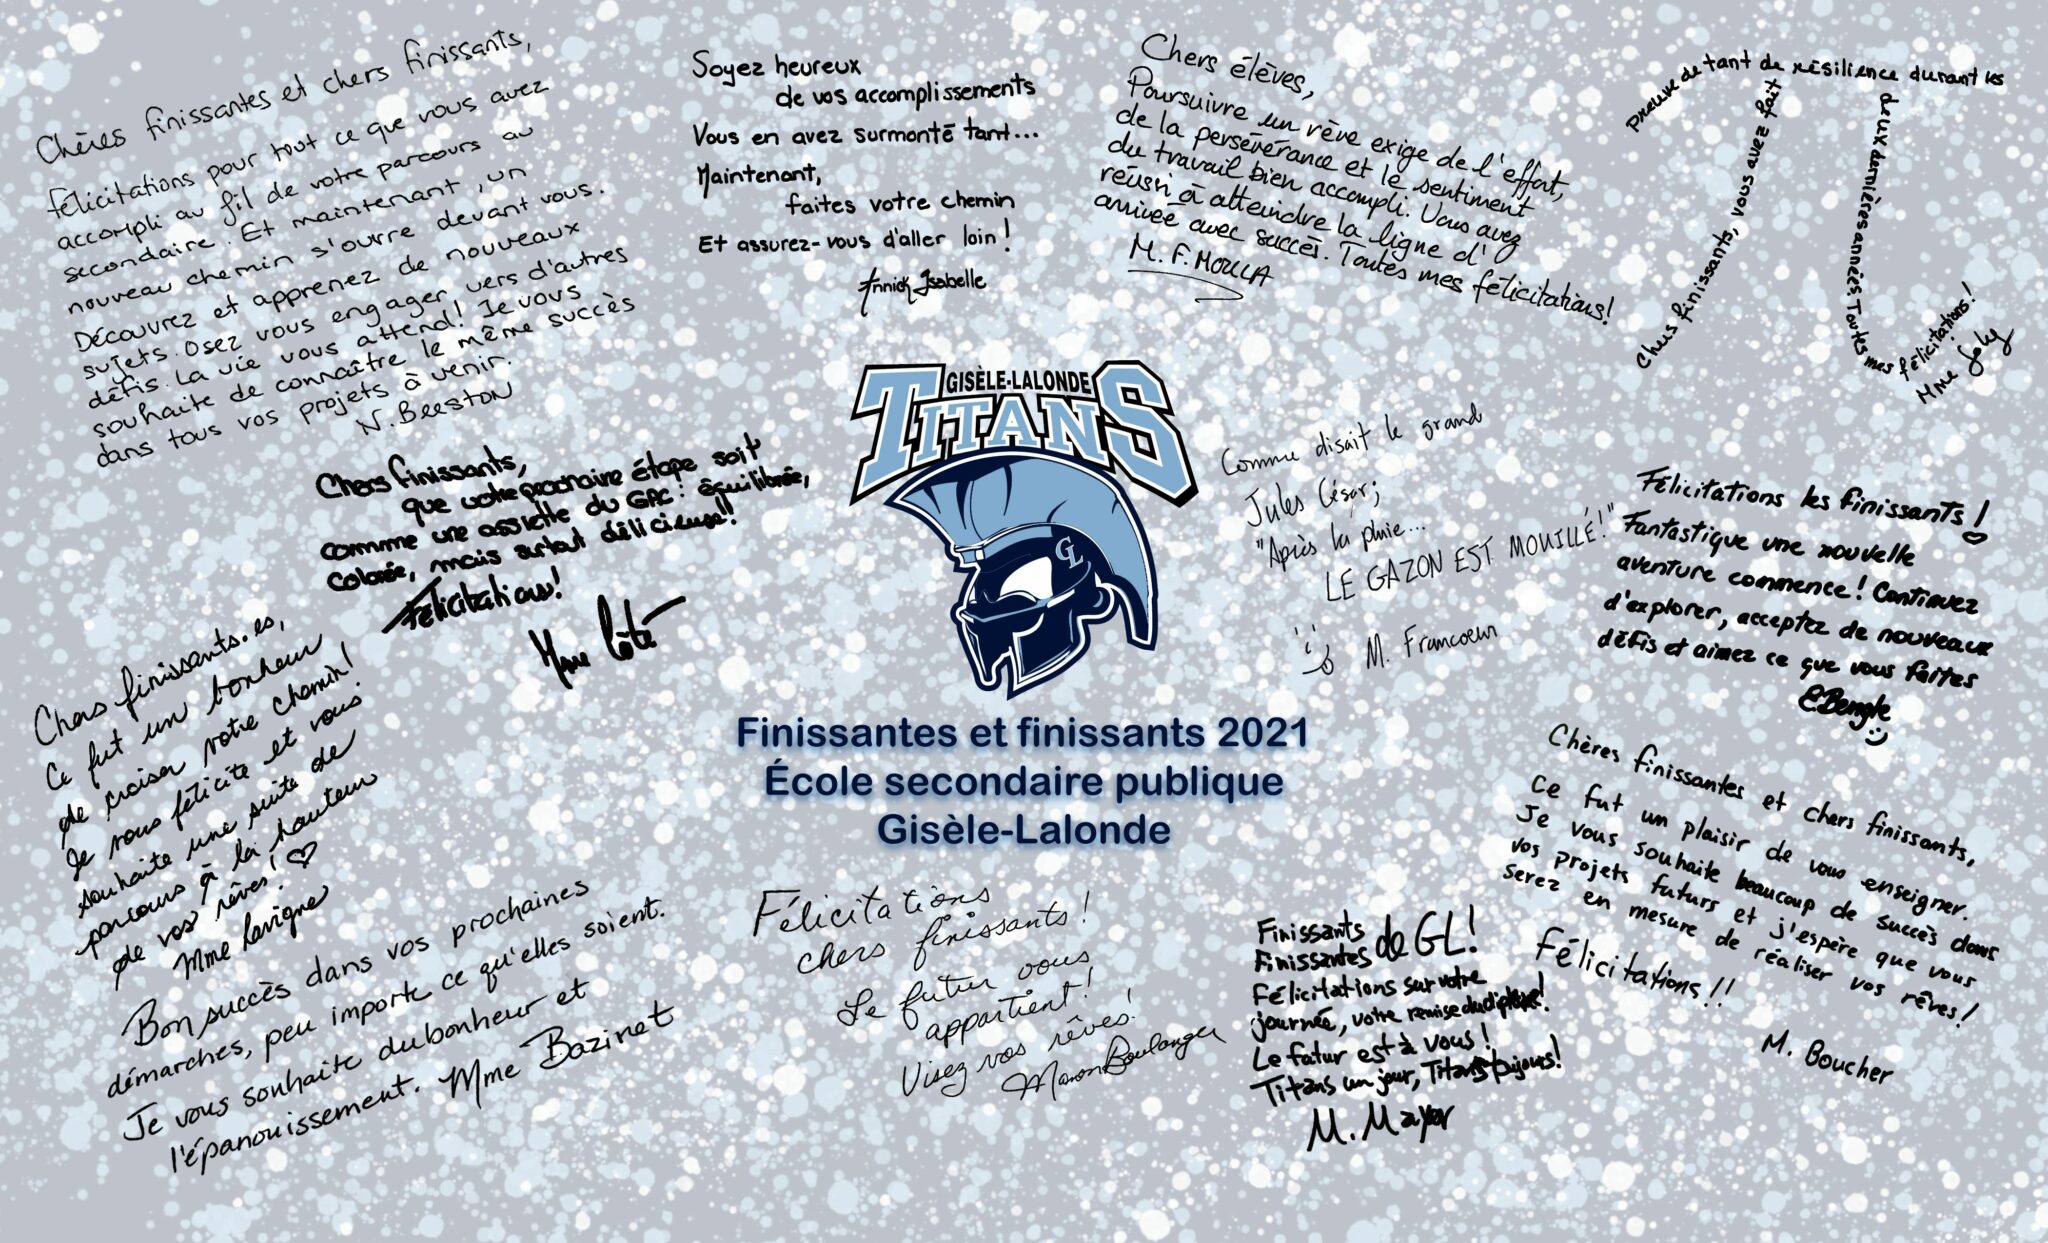 Chères finissantes et chers finissants,
Félicitations pour tout ce que vous avez
accompli au fil de votre parcours au
secondaire. Et maintenant, un
nouveau chemin s'ouvre devant vous.
Découvrez et apprenez de nouveaux
sujets. Osez vous engager vers d'autres
défis. La vie vous attend! Je vous
souhaite de connaître le même succès
dans tous vos projets à venir.
N. Beeston
Soyez heureux
de vos accomplissements
Vous en avez surmonté tant...
Maintenant,
faites votre chemin
Et assurez-vous d'aller loin!
Annick Isabelle
Chers élèves,
Poursuivre un rêve exige de l'effort,
de la persévérance et le sentiment
du travail bien accompli. Vous avez
réussi à atteindre la ligne d'
arrivée avec succès. Toutes mes félicitations!
M. F. MOULLA
Chers finissants, vous avez fait
preuve de tant de résilience durant les
deux dernières années. Toutes mes félicitations!
Mme Joly
GISÈLE-LALONDE
TITANS
GL
Chers finissants,
que votre prochaine étape soit
comme une assiette du GAC: équilibrée,
colorée, mais surtout délicieuse!!
Félicitations!
Mme Côté
Comme disait le grand
Jules César;
"Après la pluie...
LE GAZON EST MOUILLÉ!"
M. Francoeur
Félicitations les finissants!
Fantastique une nouvelle
aventure commence! Continuez
d'explorer, acceptez de nouveaux
défis et aimez ce que vous faites
Chers finissants.es,
Ce fut un bonheur
de croiser votre chemin!
Je vous félicite et vous
souhaite une suite de
parcours à la hauteur
de vos rêves!
Mme Lavigne
Finissantes et finissants 2021
École secondaire publique
Gisèle-Lalonde
Chères finissantes et chers finissants,
Ce fut un plaisir de vous enseigner.
Je vous souhaite beaucoup de succès dans
vos projets futurs et j'espère que vous
serez en mesure de réaliser vos rêves!
Félicitations!!
M. Boucher
Bon succès dans vos prochaines
démarches, peu importe ce qu'elles soient.
Je vous souhaite du bonheur et
l'épanouissement. Mme Bazinet
Félicitations
chers finissants!
Le futur vous
appartient!
Visez vos rêves!
Manon Boulanger
Finissants
Finissantes de GL!
Félicitations sur votre
journée, votre remise du diplôme!
Le futur est à vous!
Titans un jour, Titans toujours!
M. Mayer